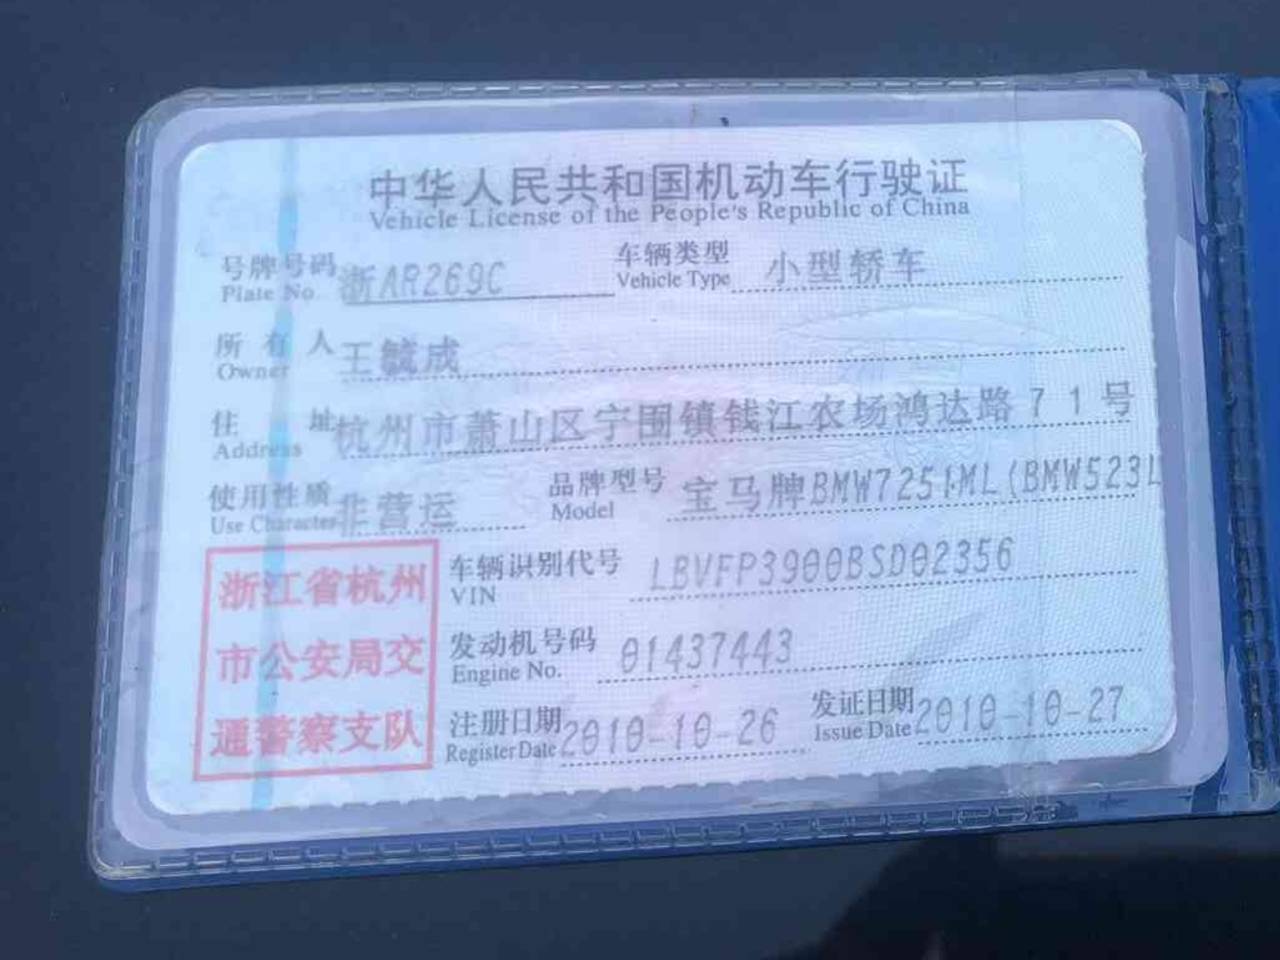 中华人民共和国机动车行驶证
Vehicle License of the People's Republic of China
号牌号码 浙AR269C 车辆类型 小型轿车
Plate No. Vehicle Type
所有人 王毓成
Owner
住址 杭州市萧山区宁围镇钱江农场鸿达路71号
Address
使用性质 非营运 品牌型号 宝马牌BMW7251ML(BMW523L
Use Character Model
浙江省杭州
市公安局交
通警察支队
车辆识别代号 LBVFP3900BSD02356
VIN
发动机号码 01437443
Engine No.
注册日期 2010-10-26 发证日期 2010-10-27
Register Date Issue Date